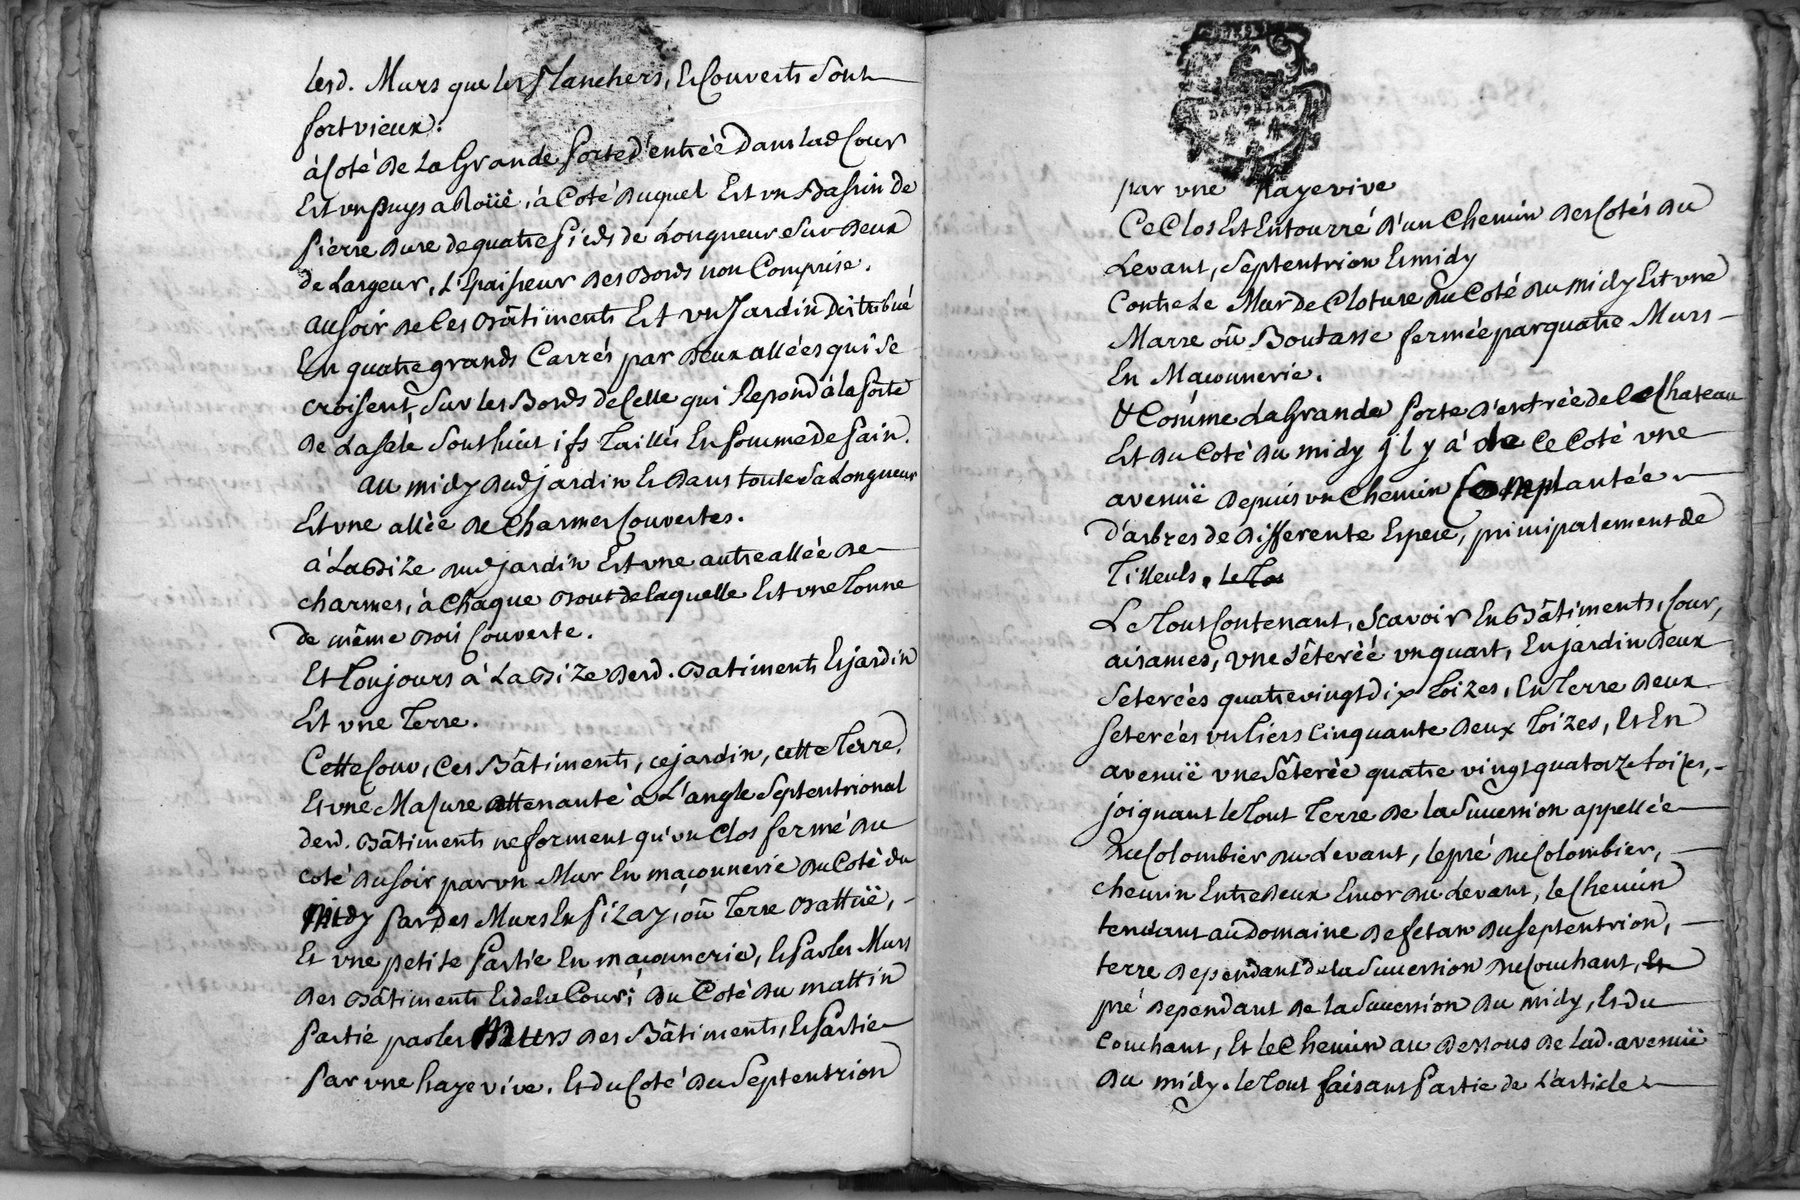 lesd. Murs que les Planchers, Et Couverts Sont
fort vieux.
à Coté de La Grande Porte d'entrée Dans lad. Cour
Est un Puys a Roüe, à Coté duquel Est un Bassin de
Pierre dure de quatre Pieds de Longueur Sur deux
de Largeur, L'Epaisseur des Bords non Comprise.
au Soir de Ces Bâtiments Est un Jardin Distribué
En quatre grands Carrés par deux allées qui Se
croisent, Sur les Bords de Celle qui Repond à la Porte
de La Sale Sont huit ifs Taillés En Pomme de Pain.
au midy dud. jardin Et dans toute Sa Longueur
Est une allée de Charmes Couvertes.
à La Bize dud. jardin Est une autre allée de
charmes, à Chaque Bout de laquelle Est une Tonne
de même Bois Couverte.
Et Toujours à La Bize desd. Batiments Et jardin
Est une Terre.
Cette Cour, Ces Bâtiments, ce jardin, cette Terre,
Et une Masure attenante à L'angle Septentrional
desd. Bâtiments ne forment qu'un Clos fermé du
coté du Soir par un Mur En maçonnerie du Coté du
Midy Par des Murs En Pizay, où Terre Battüe,
Et une petite Partie En maçonnerie, Et Par les Murs
des Bâtiments Et de la Cour; du Coté du mattin
Partie par les Murs des Bâtiments, Et Partie
Par une haye vive. Et du Coté du Septentrion
DAUPHINE
par une hayevive
Ce Clos Est Entourré d'un Chemin des Cotés du
Levant, Septentrion Et midy
Contre Le Mur de Cloture du Coté du midy Est une
Marre où Boutasse fermée par quatre Murs
En Maçonnerie.
& Comme La Grande Porte d'entrée de Ce Chateau
Est du Coté du midy jl y à de Ce Coté une
avenüe depuis un Chemin Complantée
d'arbres de differente Espece, principalement de
Tilleuls. Le Tou
Le Tout Contenant, Scavoir En Bâtiments, Cour,
aisances, une Sêterée un quart, En jardin deux
Seterées quatre vingt dix Toizes, En Terre deux
Seterées un tiers Cinquante deux Toizes, Et En
avenüe une Sêterée quatre vingt quatorze toizes,
joignant le Tout Terre de la Succession appellée
du Colombier du Levant, le pré du Colombier,
chemin Entredeux Encor du Levant, le Chemin
tendant au Domaine de Petan du Septentrion,
terre dependant de la Succession du Couchant, Et
pré dependant de la Succession du midy, Et du
Couchant, Et le Chemin au dessous de lad. avenüe
du midy. le Tout faisant Partie de L'article